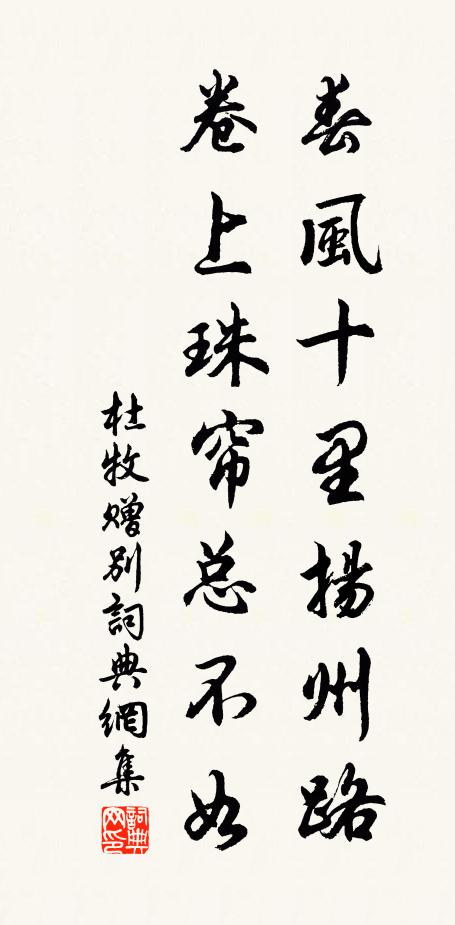 春風十里揚州路
卷上珠帘总不如
杜牧贈別詞典網集
詞典网印